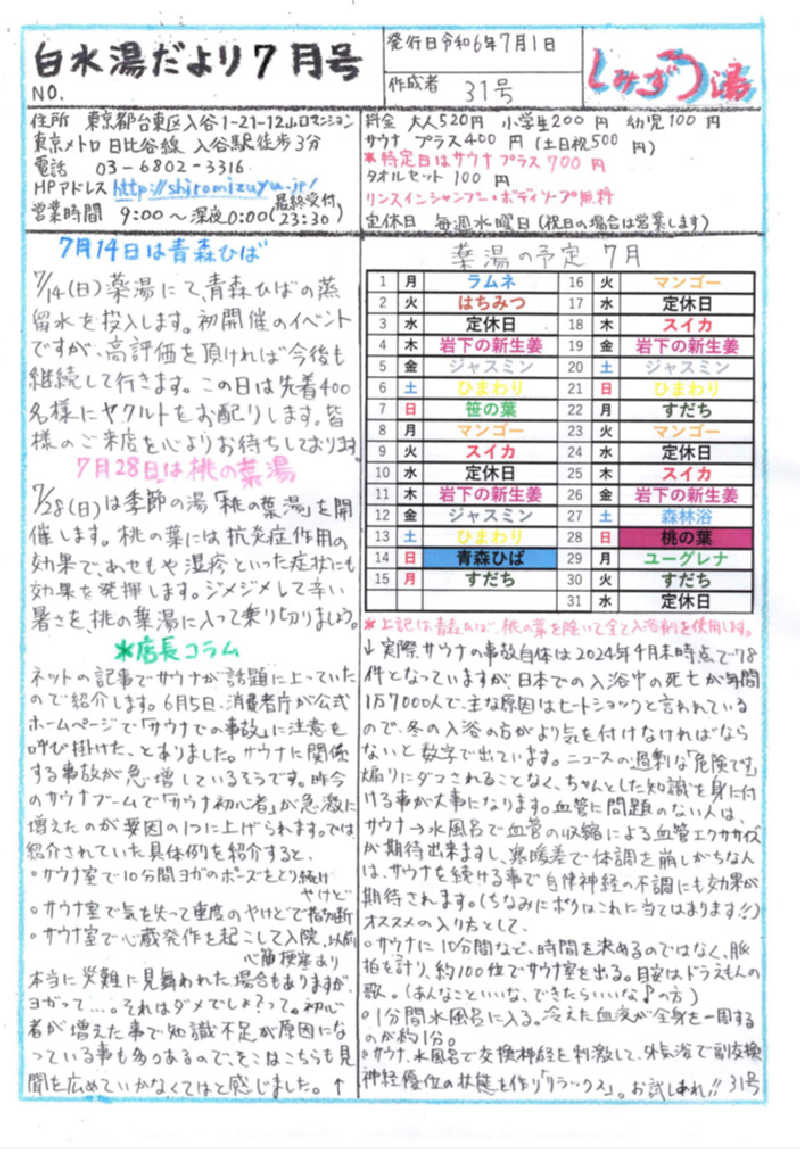 白水湯だより7月号
NO.
発行日令和6年7月1日
作成者 31号
しみずゆ湯
住所 東京都台東区入谷1-21-12山口マンション
東京メトロ日比谷線 入谷駅徒歩3分
電話 03-6802-3316
HPアドレス http://shiromizuyu.jp/
営業時間 9:00～深夜0:00(最終受付23:30)
料金 大人520円 小学生200円 幼児100円
サウナ プラス400円(土日祝500円)
*特定日はサウナプラス700円
タオルセット100円
リンスインシャンプー・ボディソープ無料
定休日 毎週水曜日(祝日の場合は営業します)
7月14日は青森ひば
7/14(日)薬湯にて、青森ひばの蒸
留水を投入します。初開催のイベント
ですが、高評価を頂ければ今後も
継続して行きます。この日は先着400
名様にヤクルトをお配りします。皆
様のご来店を心よりお待ちしております
7月28日は桃の葉湯
7/28(日)は季節の湯「桃の葉湯」を開
催します。桃の葉には抗炎症作用の
効果で、あせもや湿疹といった症状にも
効果を発揮します。ジメジメして辛い
暑さを、桃の葉湯に入って乗り切りましょう。
*店長コラム
ネットの記事でサウナが話題に上っていた
ので紹介します。6月5日、消費者庁が公式
ホームページで「サウナでの事故」に注意を
呼び掛けた、とありました。サウナに関係
する事故が急増しているそうです。昨今
のサウナブームで「サウナ初心者」が急激に
増えたのが要因の1つに上げられます。では
紹介されていた具体例を紹介すると、
○サウナ室で10分間ヨガのポーズをとり続け
やけど
○サウナ室で気を失って重度のやけどで指切断
○サウナ室で心臓発作を起こして入院、以前
心筋梗塞あり
本当に災難に見舞われた場合もありますが、
ヨガって…。それはダメでしょ?って。初心
者が増えた事で知識不足が原因にな
っている事も多々あるので、そこはこちらも見
聞を広めていかなくてはと感じました。↑
薬湯の予定 7月
1 月 ラムネ 16 火 マンゴー
2 火 はちみつ 17 水 定休日
3 水 定休日 18 木 スイカ
4 木 岩下の新生姜 19 金 岩下の新生姜
5 金 ジャスミン 20 土 ジャスミン
6 土 ひまわり 21 日 ひまわり
7 日 笹の葉 22 月 すだち
8 月 マンゴー 23 火 マンゴー
9 火 スイカ 24 水 定休日
10 水 定休日 25 木 スイカ
11 木 岩下の新生姜 26 金 岩下の新生姜
12 金 ジャスミン 27 土 森林浴
13 土 ひまわり 28 日 桃の葉
14 日 青森ひば 29 月 ユーグレナ
15 月 すだち 30 火 すだち
31 水 定休日
*上記は青森ひば、桃の葉を除いて全て入浴剤を使用します。
↓実際サウナの事故自体は2024年4月末時点で78
件となっていますが、日本での入浴中の死亡が年間
1万7000人で、主な原因はヒートショックと言われている
ので、冬の入浴の方がより気を付けなければなら
ないと数字で出ています。ニュースの過剰な「危険です」
煽りにダマされることなく、ちゃんとした知識を身に付
ける事が大事になります。血管に問題のない人は、
サウナ→水風呂で血管の収縮による血管エクササイズ
が期待出来ますし、寒暖差で体調を崩しがちな人
は、サウナを続ける事で自律神経の不調にも効果が
期待されます。(ちなみにボクはこれに当てはまります!!)
オススメの入り方として、
○サウナに10分間など、時間を決めるのではなく、脈
拍を計り、約100位でサウナ室を出る。目安はドラえもんの
歌。(あんなこといいな、できたらいいな♪の方)
○1分間水風呂に入る。冷えた血液が全身を一周する
のが約1分。
○サウナ、水風呂で交換神経を刺激して、外気浴で副交換
神経優位の状態を作り「リラックス」。お試しあれ!! 31号